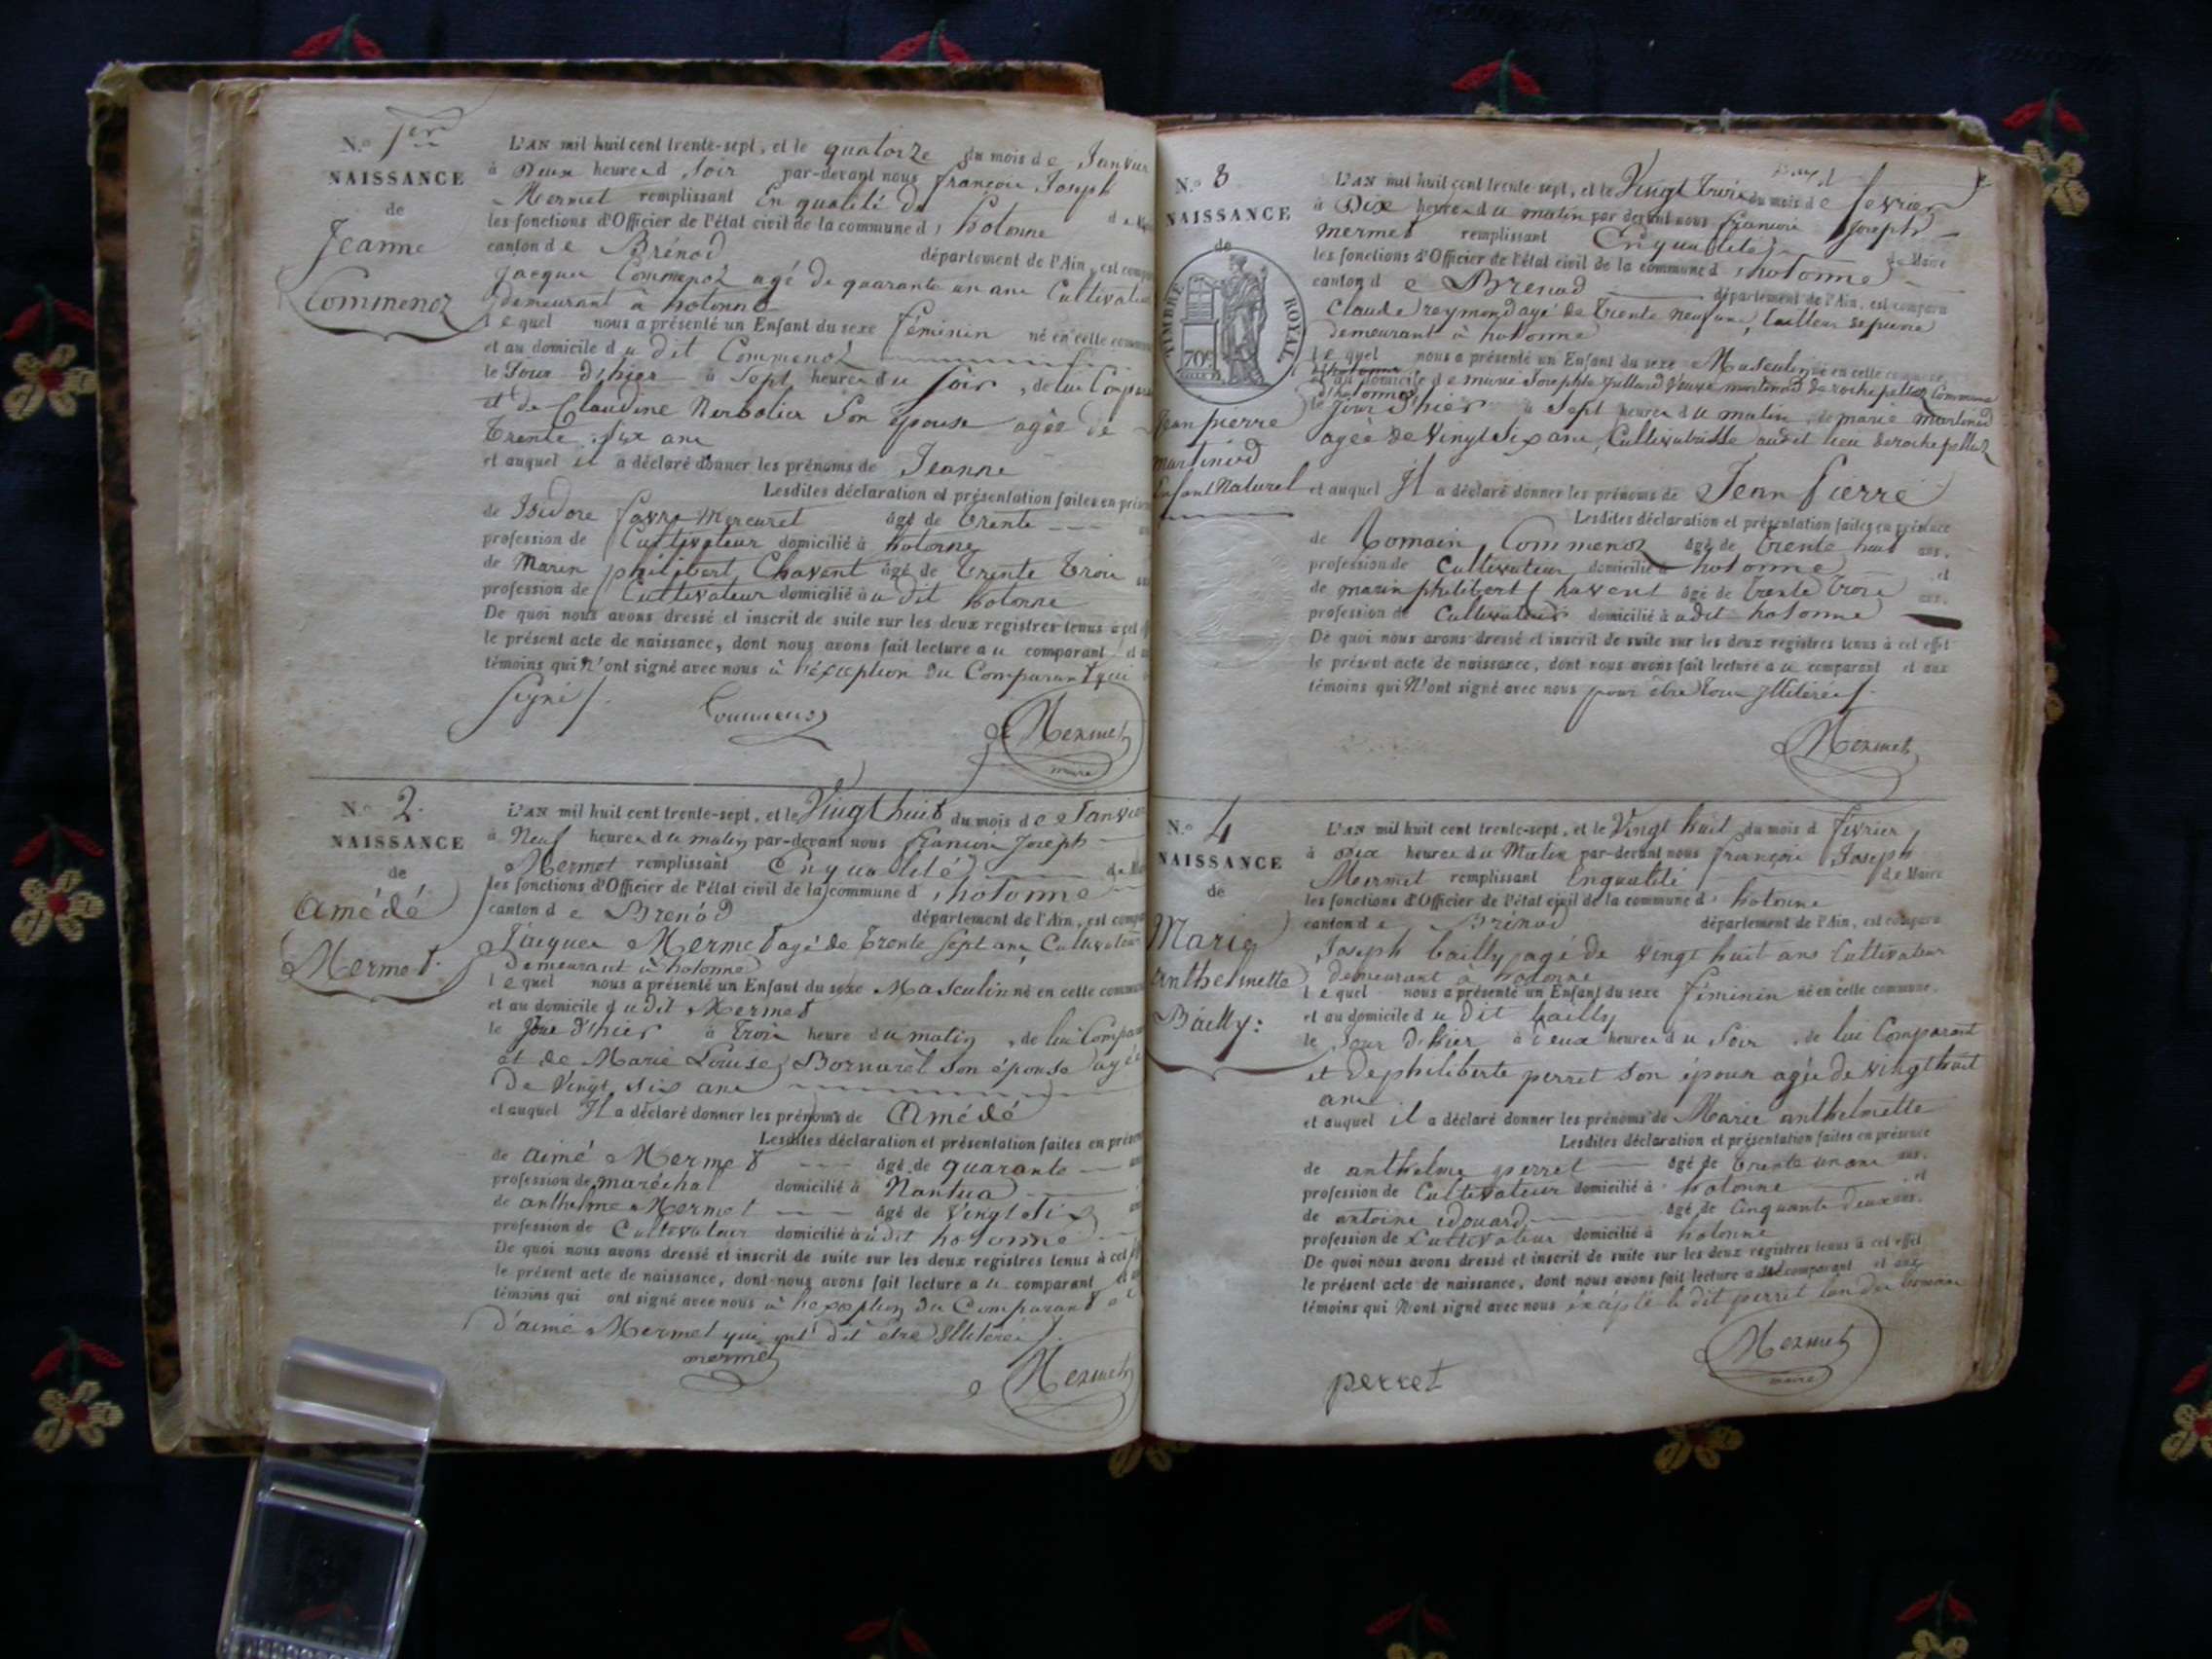 N.o 1er
NAISSANCE
de
Jeanne
Commenoz
L'AN mil huit cent trente-sept, et le quatorze du mois de Janvier
à Deux heures d soir par-devant nous françois Joseph
Mermet remplissant En qualité de
les fonctions d'Officier de l'état civil de la commune d'hotonne
canton de Brénod département de l'Ain, est
Jacques Commenoz agé de quarante un ans Cultivateur
demeurant a hotonne
lequel nous a présenté un Enfant du sexe féminin né en cette
et au domicile du dit Commenoz
le Jour d'hier à Sept heures du soir, de lui
et de Claudine Nerbolier Son épouse agée de
trente six ans
et auquel il a déclaré donner les prénoms de Jeanne
Lesdites déclaration et présentation faites en
de Isidore favre Mercuret âgé de trente
profession de Cultivateur domicilié à hotonne
de Marin philibert Chavent âgé de trente trois
profession de Cultivateur domicilié à u dit hotonne
De quoi nous avons dressé et inscrit de suite sur les deux registres tenus à cet
le présent acte de naissance, dont nous avons fait lecture au comparant
témoins qui n'ont signé avec nous à l'éxception du Comparant qui
signé
Mermet
maire
N.o 2
NAISSANCE
de
Amédé
Mermet
L'AN mil huit cent trente-sept, et le Vingt huit du mois de Janvier
à Neuf heures du matin par-devant nous francois Joseph
Mermet remplissant En qualité
les fonctions d'Officier de l'état civil de la commune d'hotonne
canton de Brenód département de l'Ain, est
Jacques Mermet agé de trente sept ans, Cultivateur
demeurant à hotonne
lequel nous a présenté un Enfant du sexe Masculin né en cette
et au domicile du dit Mermet
le Jour d'hier à trois heure du matin, de lui
et de Marie Louise Bornarel son épouse agée
de Vingt six ans
et auquel Il a déclaré donner les prénoms de Amédé
Lesdites déclaration et présentation faites en
de aimé Mermet âgé de quarante
profession de maréchal domicilié à Nantua
de anthelme Mermet âgé de Vingt Six
profession de Cultivateur domicilié à u dit hotonne
De quoi nous avons dressé et inscrit de suite sur les deux registres tenus à cet
le présent acte de naissance, dont nous avons fait lecture au comparant
témoins qui ont signé avec nous à l'exception du Comparant et
d'aimé Mermet qui ont dit être Illiterés
mermet
Mermet
N.o 3
NAISSANCE
de
TIMBRE ROYAL
70c
Jean pierre
martinod
Enfant Naturel
L'AN mil huit cent trente-sept, et le Vingt trois du mois de fevrier
à Dix heures du matin par devant nous francois Joseph
mermet remplissant En qualité de Maire
les fonctions d'Officier de l'état civil de la commune d'hotonne
canton de Brenod département de l'Ain, est comparu
Claude reymond agé de trente neuf ans, tailleur
demeurant à hotonne
lequel nous a présenté un Enfant du sexe Masculin né en cette commune
et au domicile de marie Josephte Jullard Veuve martinod de rochepelloz Commune
d'hotonne
le jour d'hier à sept heures du matin, de marie martinod
agée de vingt Six ans, Cultivatrisse audit lieu de rochepelloz
et auquel Il a déclaré donner les prénoms de Jean Pierre
Lesdites déclaration et présentation faites en présence
de Romain Commenoz âgé de trente huit ans,
profession de Cultivateur domicilié à hotonne et
de marin philibert Chavent âgé de trente trois ans,
profession de Cultivateur domicilié à u dit hotonne
De quoi nous avons dressé et inscrit de suite sur les deux registres tenus à cet effet
le présent acte de naissance, dont nous avons fait lecture au comparant et aux
témoins qui N'ont signé avec nous pour être tous Illiterés
Mermet
N.o 4
NAISSANCE
de
Marie
anthelmette
Bailly:
L'AN mil huit cent trente-sept, et le Vingt huit du mois d fevrier
à dix heures du Matin par-devant nous françois Joseph
Mermet remplissant En qualité de Maire
les fonctions d'Officier de l'état civil de la commune d'hotonne
canton de Brénod département de l'Ain, est comparu
Joseph bailly agé de vingt huit ans Cultivateur
demeurant à hotonne
lequel nous a présenté un Enfant du sexe féminin né en cette commune.
et au domicile du dit bailly
le Jour d'hier à deux heures du Soir, de lui Comparant
et de philiberte perret son épouse agée de vingt huit
ans
et auquel il a déclaré donner les prénoms de Marie anthelmette
Lesdites déclaration et présentation faites en présence
de anthelme perret âgé de trente un ans ans,
profession de Cultivateur domicilié à hotonne et
de antoine edouard âgé de Cinquante deux ans.
profession de Cultivateur domicilié à hotonne
De quoi nous avons dressé et inscrit de suite sur les deux registres tenus à cet effet
le présent acte de naissance, dont nous avons fait lecture au comparant et aux
témoins qui N'ont signé avec nous éxcépté le dit perret l'un des témoins
Mermet
maire
perret